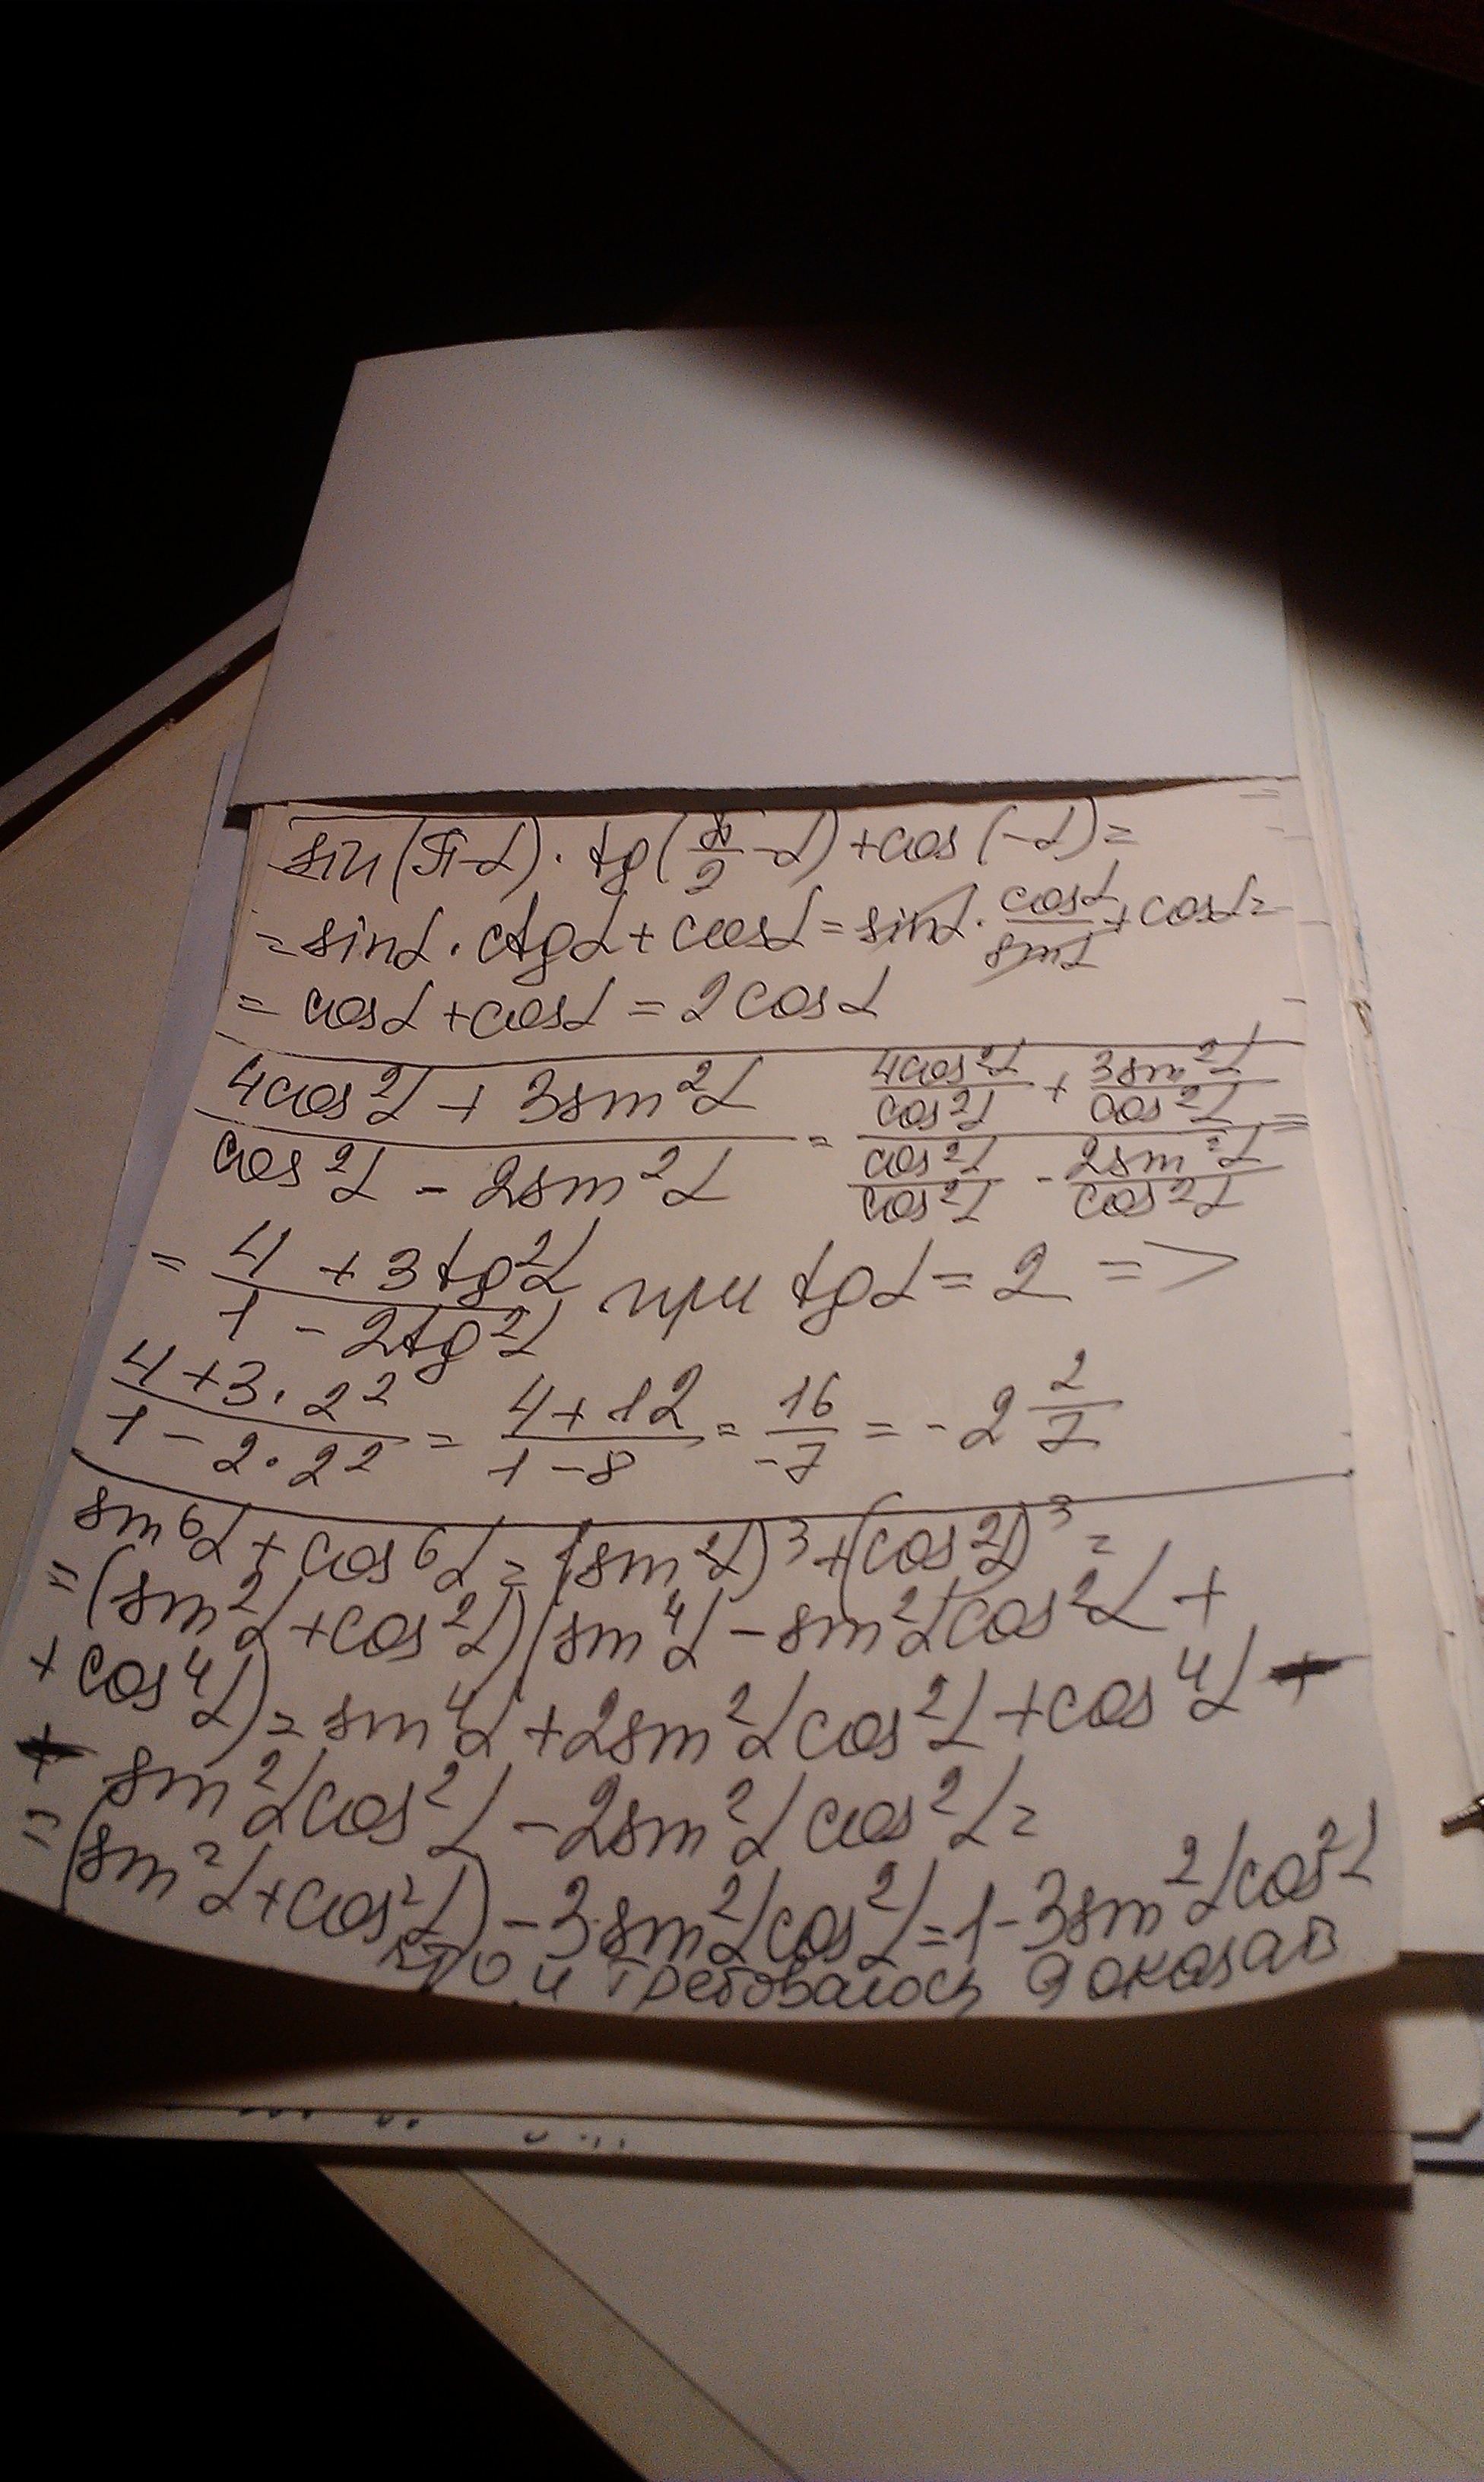 sin(π-α)·tg(π/2-α)+cos(-α)=
=sinα·ctgα+cosα=sinα·cosα/sinα+cosα=
=cosα+cosα=2cosα
(4cos²α+3sin²α)/(cos²α-2sin²α)=(4cos²α/cos²α+3sin²α/cos²α)/(cos²α/cos²α-2sin²α/cos²α)=
=(4+3tg²α)/(1-2tg²α) при tgα=2 =>
(4+3·2²)/(1-2·2²)=(4+12)/(1-8)=16/-7=-2 2/7
sin⁶α+cos⁶α=(sin²α)³+(cos²α)³=
=(sin²α+cos²α)(sin⁴α-sin²αcos²α+
+cos⁴α)=sin⁴α+2sin²αcos²α+cos⁴α-
-sin²αcos²α-2sin²αcos²α=
=(sin²α+cos²α)-3sin²αcos²α=1-3sin²αcos²α
что и требовалось доказать